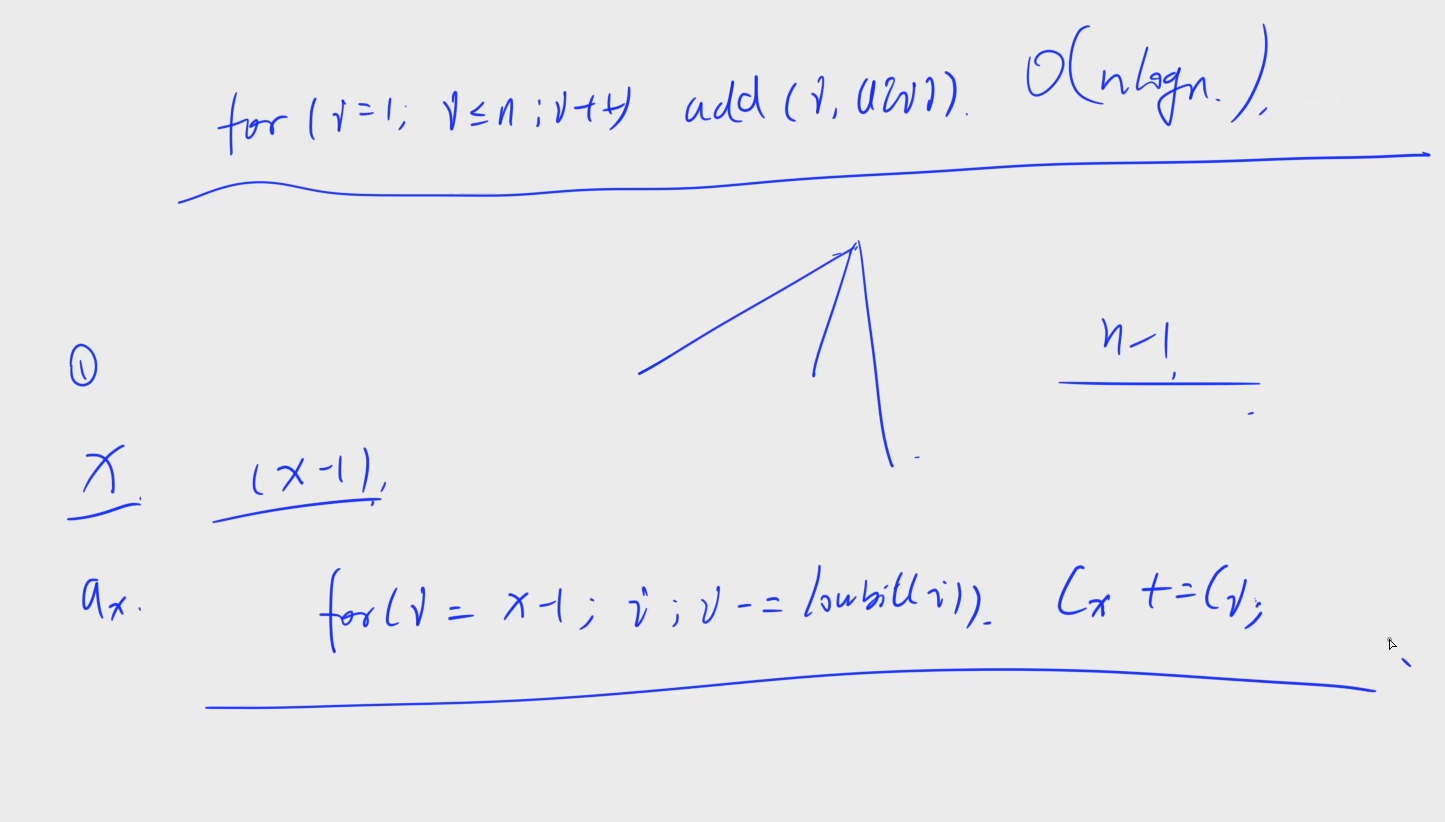 for (i=1; i≤n; i++) add (i, a[i]). O(nlogn.),
n-1
①
x. (x-1),
ax. for (i = x-1; i; i -= lowbit(i)). Cx += Ci;